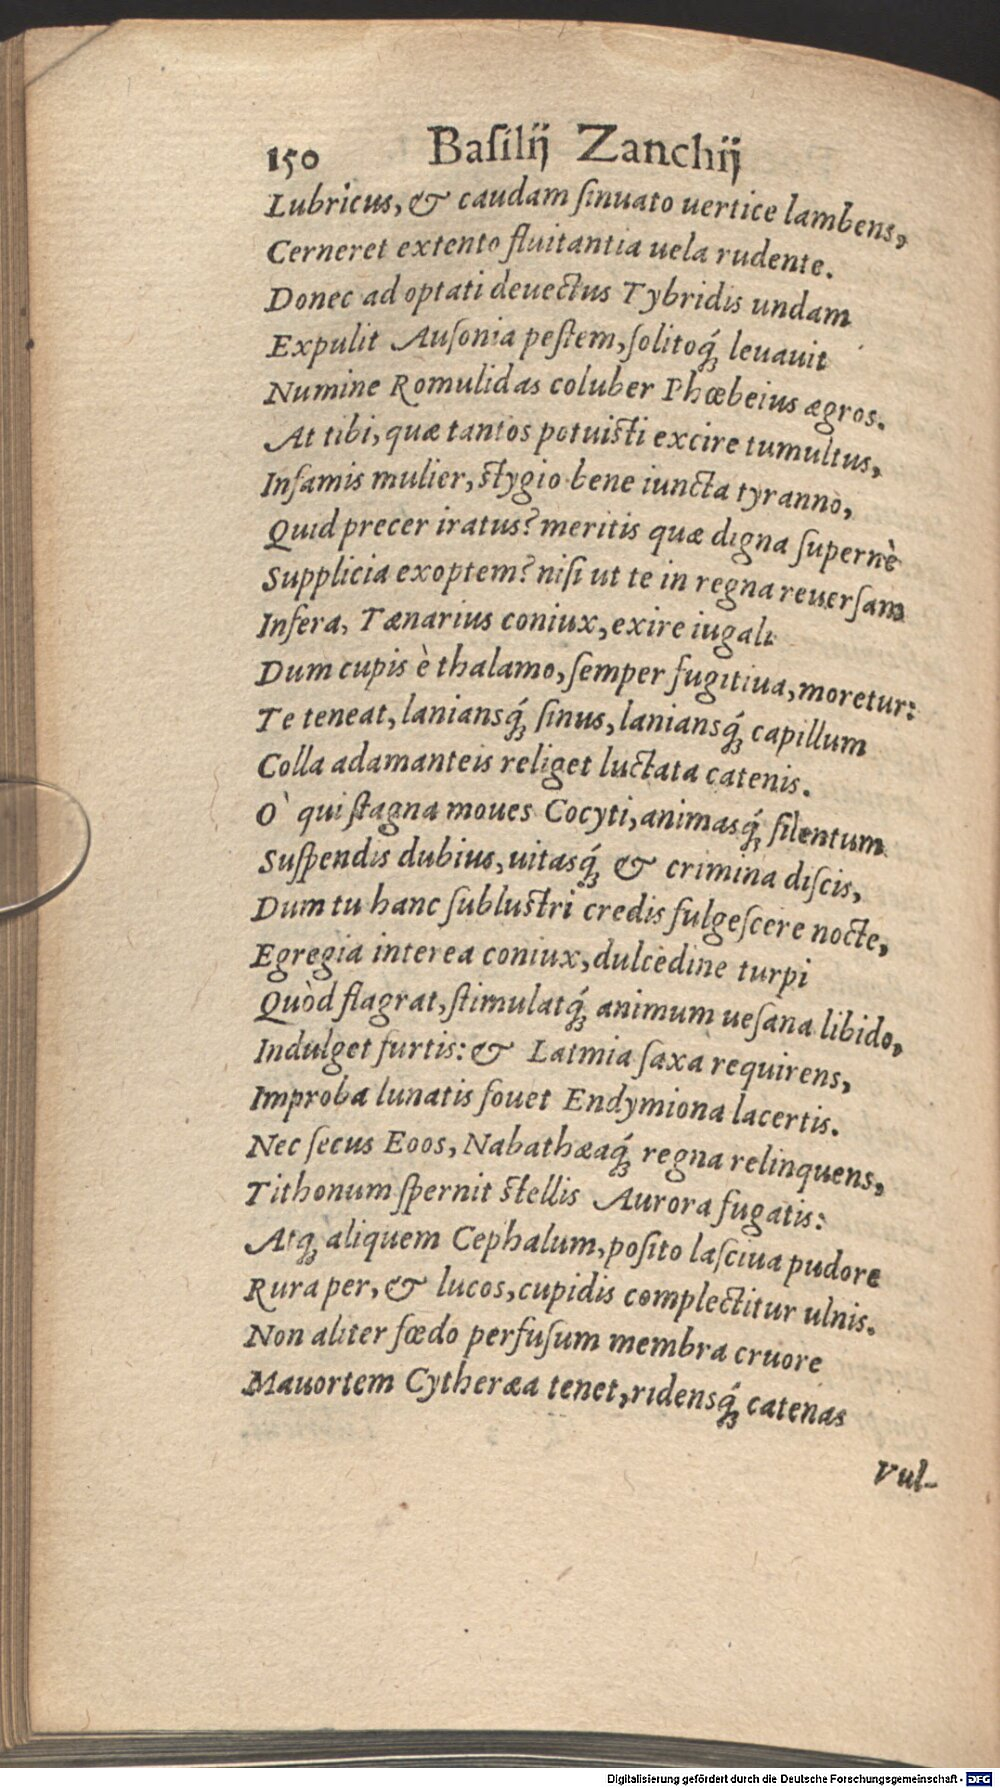 150 Baſilij Zanchij
Lubricus, & caudam ſinuato uertice lambens,
Cerneret extento fluitantia uela rudente.
Donec ad optati deuectus Tybridis undam
Expulit Auſonia peſtem, ſolitoq́; leuauit
Numine Romulidas coluber Phœbeius ægros.
At tibi, quæ tantos potuiſti excire tumultus,
Infamis mulier, ſtygio bene iuncta tyranno,
Quid precer iratus? meritis quæ digna ſupernè
Supplicia exoptem? niſi ut te in regna reuerſam
Infera, Tænarius coniux, exire iugali
Dum cupis è thalamo, ſemper fugitiua, moretur:
Te teneat, laniansq́; ſinus, laniansq́; capillum
Colla adamanteis religet luctata catenis.
O` qui ſtagna moues Cocyti, animasq́; ſilentum
Suſpendis dubius, uitasq́; & crimina diſcis,
Dum tu hanc ſubluſtri credis fulgeſcere nocte,
Egregia interea coniux, dulcedine turpi
Quòd flagrat, ſtimulatq́; animum ueſana libido,
Indulget furtis: & Latmia ſaxa requirens,
Improba lunatis fouet Endymiona lacertis.
Nec ſecus Eoos, Nabathæaq́; regna relinquens,
Tithonum ſpernit ſtellis Aurora fugatis:
Atq; aliquem Cephalum, poſito laſciua pudore
Rura per, & lucos, cupidis complectitur ulnis.
Non aliter fœdo perfuſum membra cruore
Mauortem Cytheræa tenet, ridensq́; catenas
Vul-
Digitalisierung gefördert durch die Deutsche Forschungsgemeinschaft - DFG